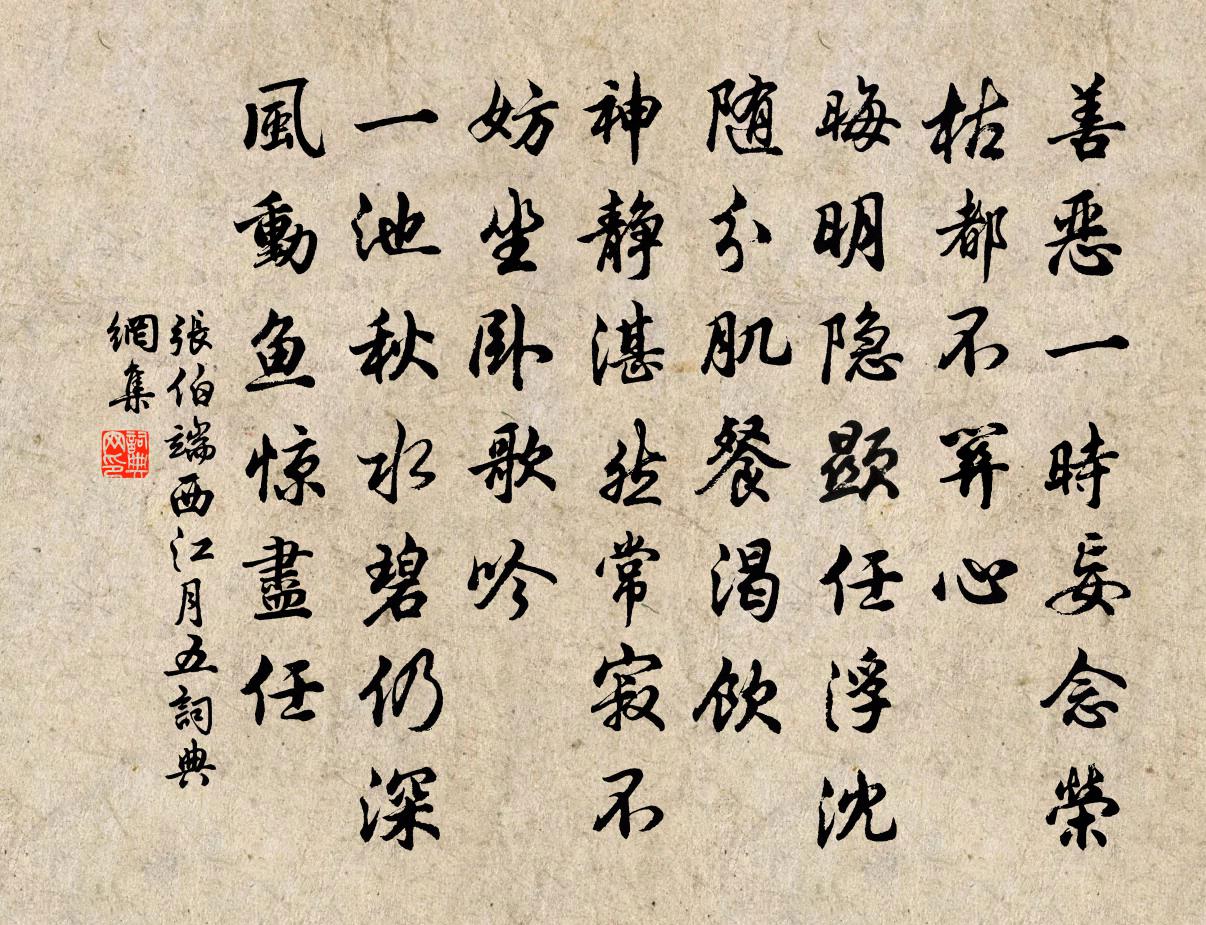 善惡一時妄念榮
枯都不關心
晦明隐顯任浮沈
随分肌餐渴飲
神静湛然常寂不
妨坐卧歌吟
一池秋水碧仍深
風動鱼惊盡任
張伯端西江月五詞典
網集
詞典网印